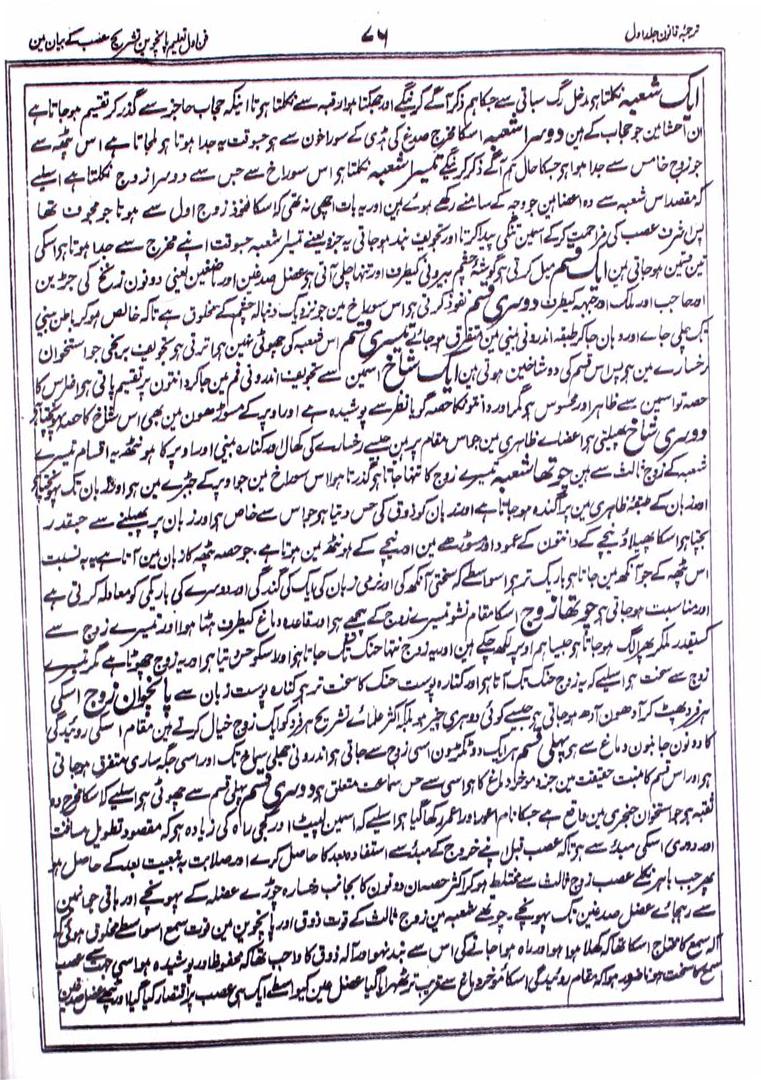 ترجمۂ قانون جلد اول
۷۶
فن اول تعلیم پانچوین تشریح عصب کے بیان مین
ایک شعبہ نکلتا ہو مدخل رگ سباتی سے جسکا ہم ذکر آگے کرینگے اور جھکتا ہوا رقبہ سے نکلتا ہو تا اینکہ حجاب حاجز سے گذر کر تقسیم ہو جاتا ہے
ان احشا مین جو حجاب کے ہین دوسرا شعبہ اسکا مخرج صدغ کی ہڈی کے سوراخون سے ہو جسوقت یہ جدا ہوتا ہو ملجاتا ہے اس پٹھہ سے
جو زوج خامس سے جدا ہوا ہو جسکا حال ہم آگے ذکر کرینگے تیسرا شعبہ نکلتا ہو اس سوراخ سے جس سے دوسرا زوج نکلتا ہے اسلیے
کہ مقصد اس شعبہ سے وہ اعضا ہین جو وجہ کے سامنے رکھے ہوئے ہین اور یہ بات اچھی نہ تھی کہ اسکا نفوذ زوج اول سے ہوتا جو مجوف تھا
پس اشرف عصب کی مزاحمت کرکے اسمین تنگی پیدا کرتا اور تجویف بند ہو جاتی یہ جزو یعنے تیسرا شعبہ جسوقت اپنے مخرج سے جدا ہوتا ہو اسکی
تین قسمین ہو جاتی ہین ایک قسم میل کرتی ہو گوشۂ چشم بیرونی کیطرف اور تنہا چلی آتی ہو عضل صدغین اور ماضغین یعنی دونون زنخ کی جڑین
اور حاجب اور ملک اور جبہہ کیطرف دوسری قسم نفوذ کرتی ہو اس سوراخ مین جو نزدیک دنبالہ چشم کے مخلوق ہے تاکہ خالص ہو کر باطن بینی
تک چلی جاے اور وہان جاکر طبقہ اندرونی بینی مین متفرق ہو جائے تیسری قسم اس شعبہ کی چھوٹی نہین ہو اترتی ہو تجویف بربخی جو استخوان
رخسارے مین ہو پس اس قسم کی دو شاخین ہوتی ہین ایک شاخ اسمین سے تجویف اندرونی فم مین جاکر دانتون پر تقسیم پاتی ہو اضراس کا
حصہ تو اسمین سے ظاہر اور محسوس ہو مگر اور دانتونکا حصہ گویا نظر سے پوشیدہ ہے اور اوپر کے مسوڑھون مین بھی اس شاخ کا حصہ پہونچتا ہو
دوسری شاخ پھیلتی ہو اعضاے ظاہری مین جو اس مقام پر ہین جیسے رخسارے کی کھال اور کنارہ بینی اور اوپر کا ہونٹھ یہ اقسام تیسرے
شعبہ کے زوج ثالث سے ہین چوتھا شعبہ تیسرے زوج کا تنہا جاتا ہو گذرتا ہوا اس سوراخ مین جو اوپر کے جبڑے مین ہو اور زبان تک پہونچتا ہو
اور زبان کے طبقۂ ظاہری مین پراگندہ ہو جاتا ہے اور زبان کو ذوق کی حس دیتا ہو جو اس سے خاص ہو اور زبان پر پھیلنے سے جسقدر
بچتا ہو اسکا پھیلاؤ نیچے کے دانتون کے عمود اور مسوڑھے مین اور نیچے کے ہونٹھ مین ہوتا ہے۔ جو حصہ پٹھہ کا زبان مین آتا ہے یہ بہ نسبت
اس پٹھہ کے جو آنکھ مین جاتا ہو باریک تر ہو اسواسطے کہ سختی آنکھ کی اور نرمی زبان کی ایک کی گندگی اور دوسرے کی باریکی کو معاملہ کرتی ہے
اور مناسبت ہو جاتی ہو چوتھا زوج اسکا مقام نشو تیسرے زوج کے پیچھے ہو اور قاعدہ دماغ کیطرف ہٹا ہوا اور تیسرے زوج سے
کسیقدر ملکر پھر الگ ہو جاتا ہو جیسا ہم اوپر لکھ چکے ہین اور یہ زوج تنہا حنک تک جاتا ہو اور اسکو حس دیتا ہو اور یہ زوج چھوٹا ہے مگر تیسرے
زوج سے سخت ہو اسلیے کہ یہ زوج حنک تک آتا ہو اور کنارہ پوست حنک کا سخت تر ہو کنارہ پوست زبان سے پانچوان زوج اسکی
ہر فرد پھٹ کر آدھون آدھ ہو جاتی ہو جیسے کوئی دوہری چیز ہو بلکہ اکثر علمائے تشریح ہر فرد کو ایک زوج خیال کرتے ہین مقام اسکی روئیدگی
کا دونون جانبون دماغ سے ہو پہلی قسم ہر ایک دو ٹکڑیون اسی زوج سے جاتی ہو اندرونی جھلی سماخ تک اور اسی جگہ ساری متفرق ہو جاتی
ہو اور اس قسم کا منبت حقیقت مین جزو موخر دماغ کا ہو اسی سے حس سماعت متعلق ہو دوسری قسم پہلی قسم سے چھوٹی ہو اسلیے کہ اسکا مخرج وہ
ثقبہ ہو جو استخوان حجری مین واقع ہے جسکا نام اعور اور اعمی رکھا گیا ہو اسلیے کہ اسمین لپیٹ اور کجی راہ کی زیادہ ہو کہ مقصود تطویل مسافت
اور دوری اسکی مبدء سے ہو تاکہ عصب قبل اپنے خروج کے مبدء سے استفادہ بعد کا حاصل کرے اور صلابت بہ تبعیت بعد کے حاصل ہو
پھر جب باہر نکلے عصب زوج ثالث سے مختلط ہو کر اکثر حصہ ان دونون کا بجانب رخسارہ چوڑے عضلہ کے پہونچے اور باقی جو انہین
سے رہجائے عضل صدغین تک پہونچے۔ چوتھے شعبہ مین زوج ثالث کے قوت ذوق اور پانچوین مین قوت سمع اسواسطے مخلوق ہوئی کہ
آلہ سمع کا محتاج اسکا تھا کہ کھلا ہوا ہو اور راہ ہوا جانے کی اس سے بند نہو اور آلہ ذوق کا واجب تھا کہ محفوظ اور پوشیدہ ہو اسی جہت سے عصب
سمع کا سخت ہونا ضرور ہوا کہ مقام روئیدگی اسکا موخر دماغ سے قریب تر ٹھہرایا گیا عضل عین کیواسطے ایک ہی عصب پر اقتصار کیا گیا اور پٹھے عضل صدغین